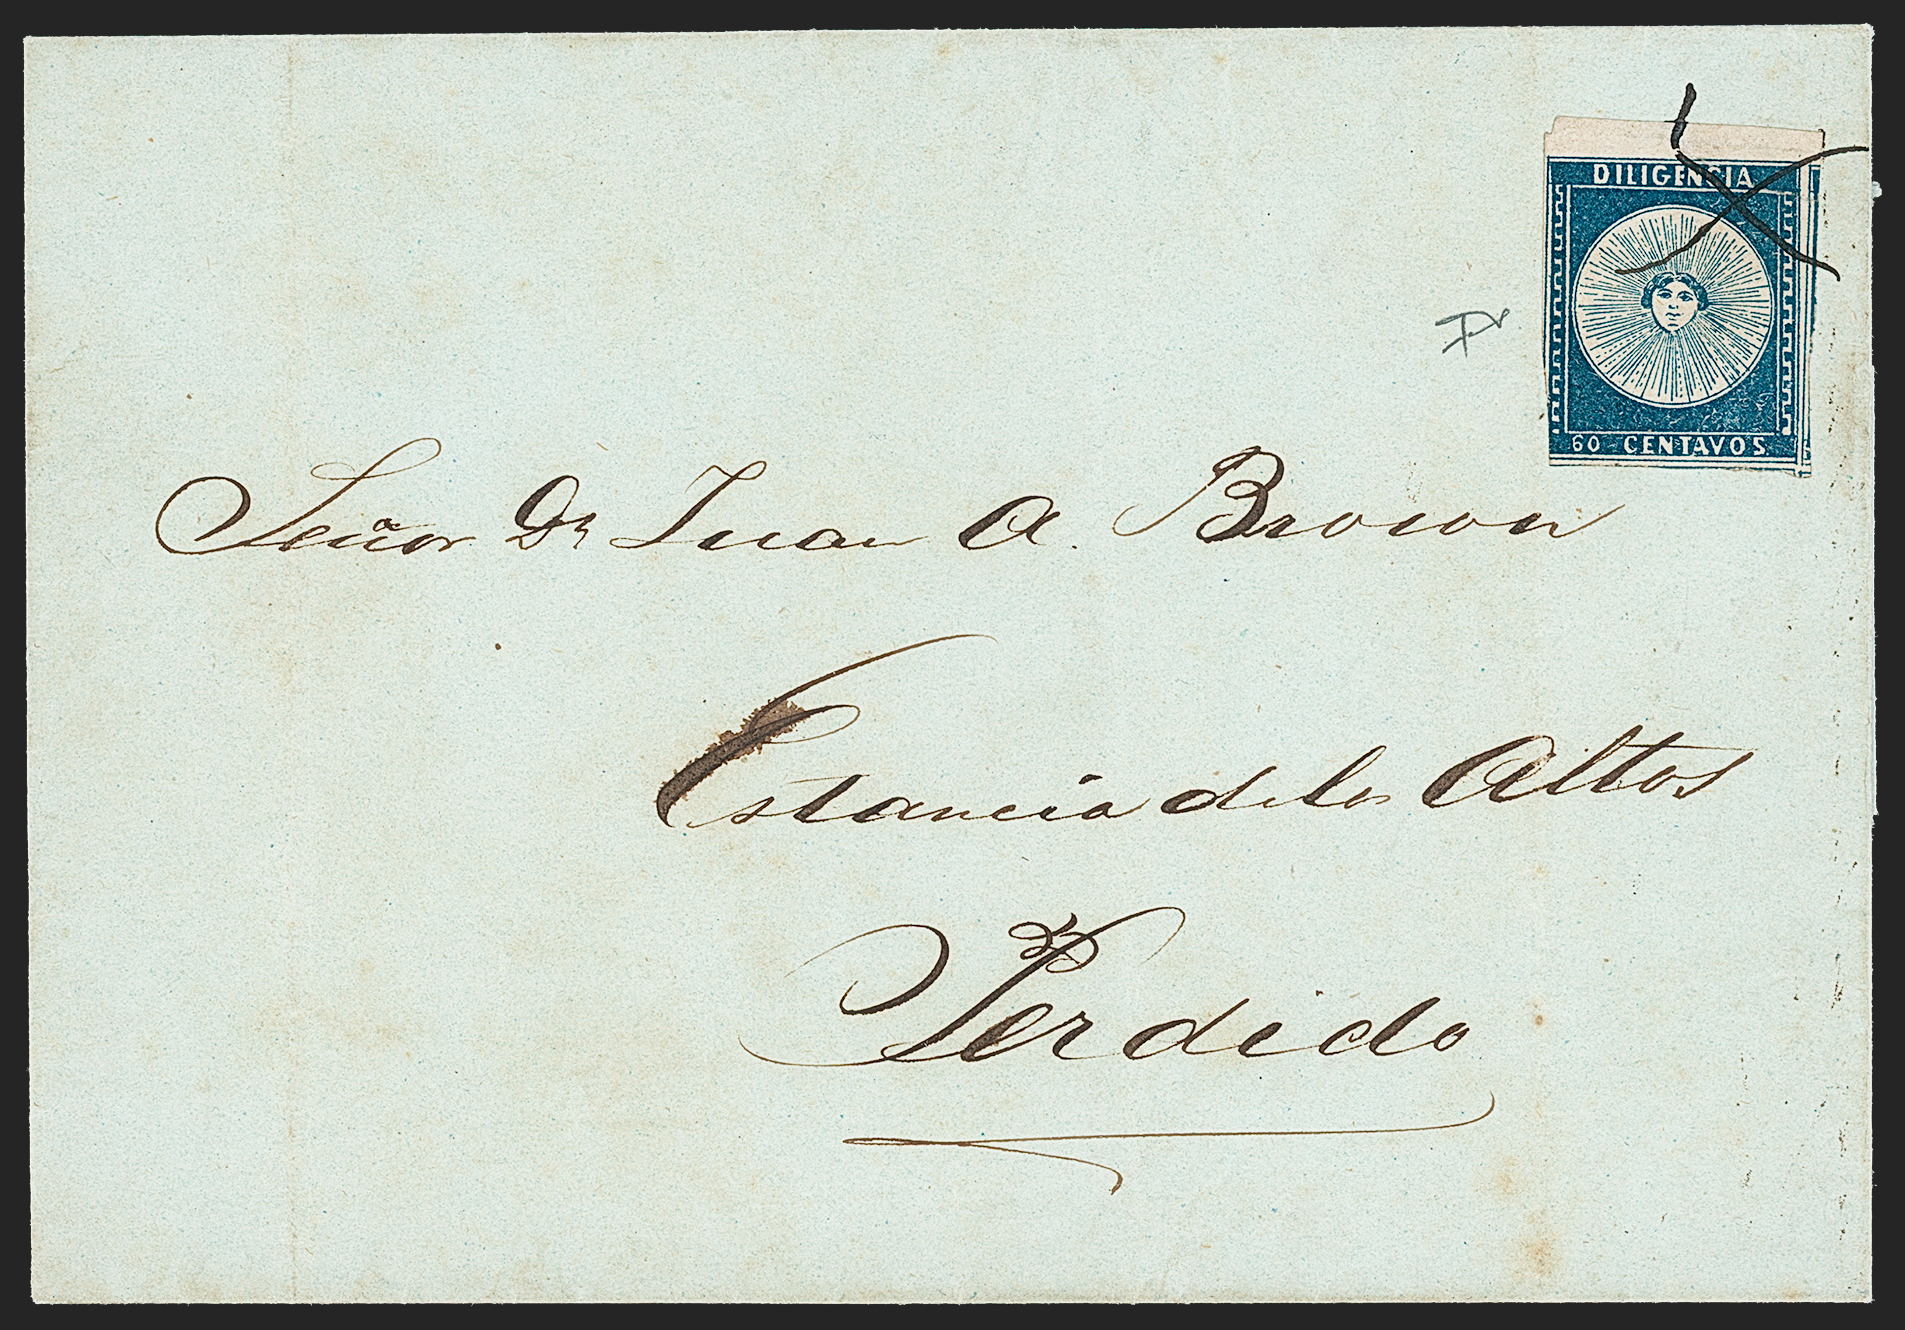 DILIGENCIA
60 CENTAVOS
Señor Dn Juan A. Brown
Estancia de los Altos
Perdido